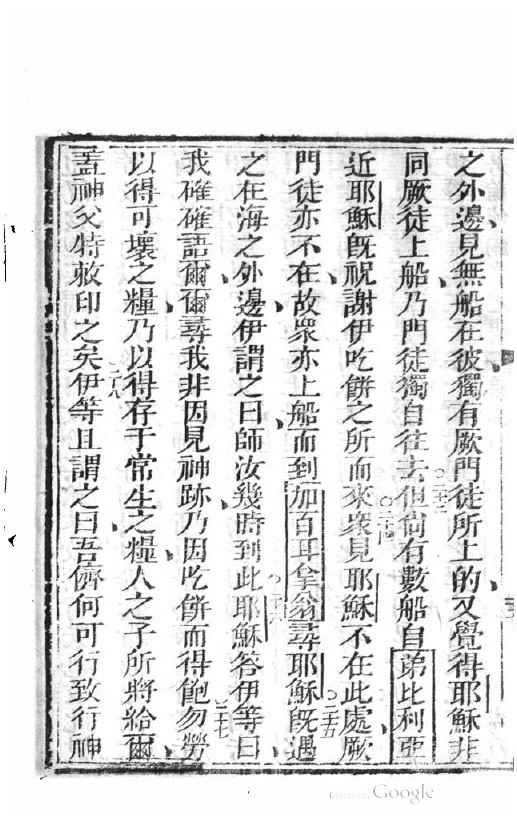 之外邊見無船在彼獨有厥門徒所上的又覺得耶穌非
同厥徒上船乃門徒獨自往去但尚有數船自弟比利亞
近耶穌既祝謝伊吃餅之所而來衆見耶穌不在此處厥
門徒亦不在故衆亦上船而到加百耳拿翁尋耶穌既遇
之在海之外邊伊謂之曰師汝幾時到此耶穌答伊等曰
我確確語爾爾尋我非因見神跡乃因吃餅而得飽勿勞
以得可壞之糧乃以得存于常生之糧人之子所將給爾
蓋神父特敕印之矣伊等且謂之曰吾儕何可行致行神
二十三
二十四
二十五
二十七
二十八
Digitized by Google